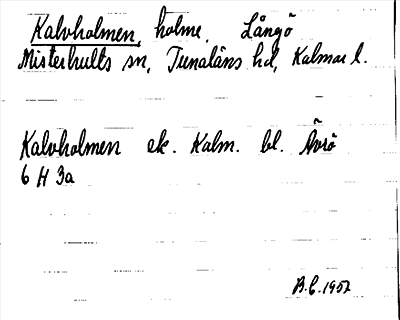 Kalvholmen, holme, Långö
Misterhults sn, Tunaläns hd, Kalmar l.
Kalvholmen ek. Kalm. bl. Ävrö
6 H 3a
B.C. 1957